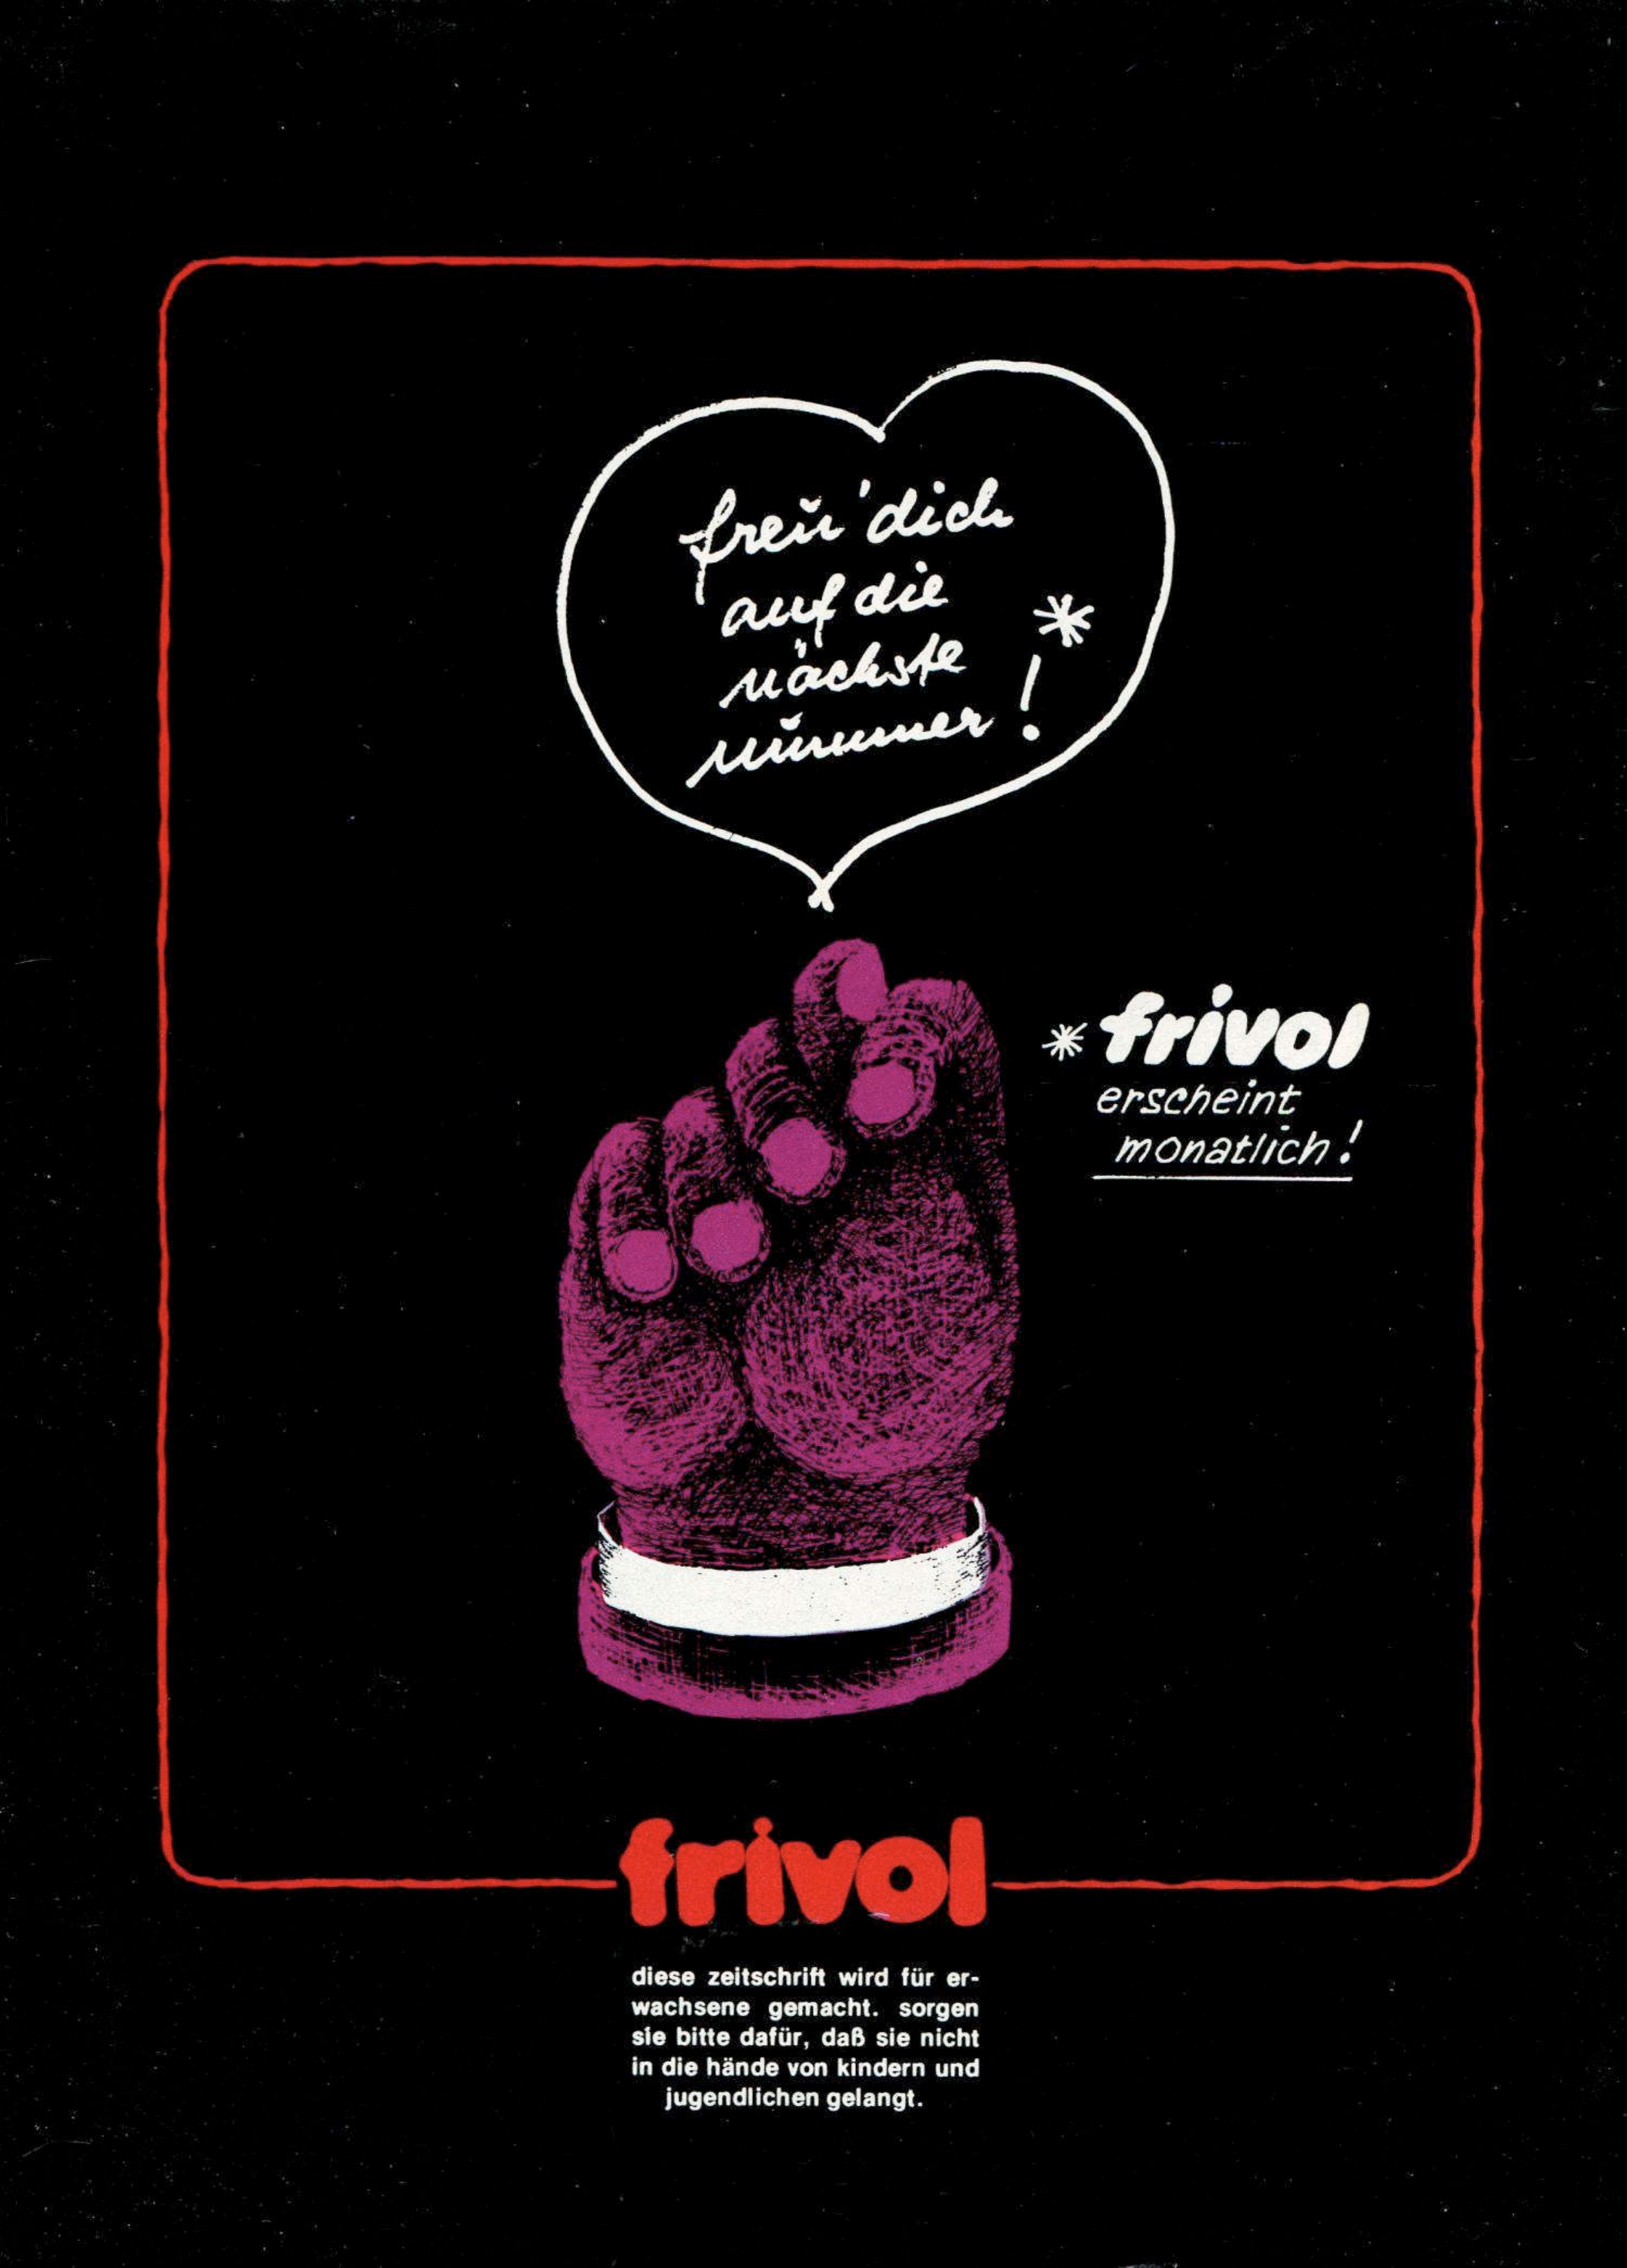 freu' dich
auf die
nächste
nummer! *
* frivol
erscheint
monatlich!
frivol
diese zeitschrift wird für er-
wachsene gemacht. sorgen
sie bitte dafür, daß sie nicht
in die hände von kindern und
jugendlichen gelangt.